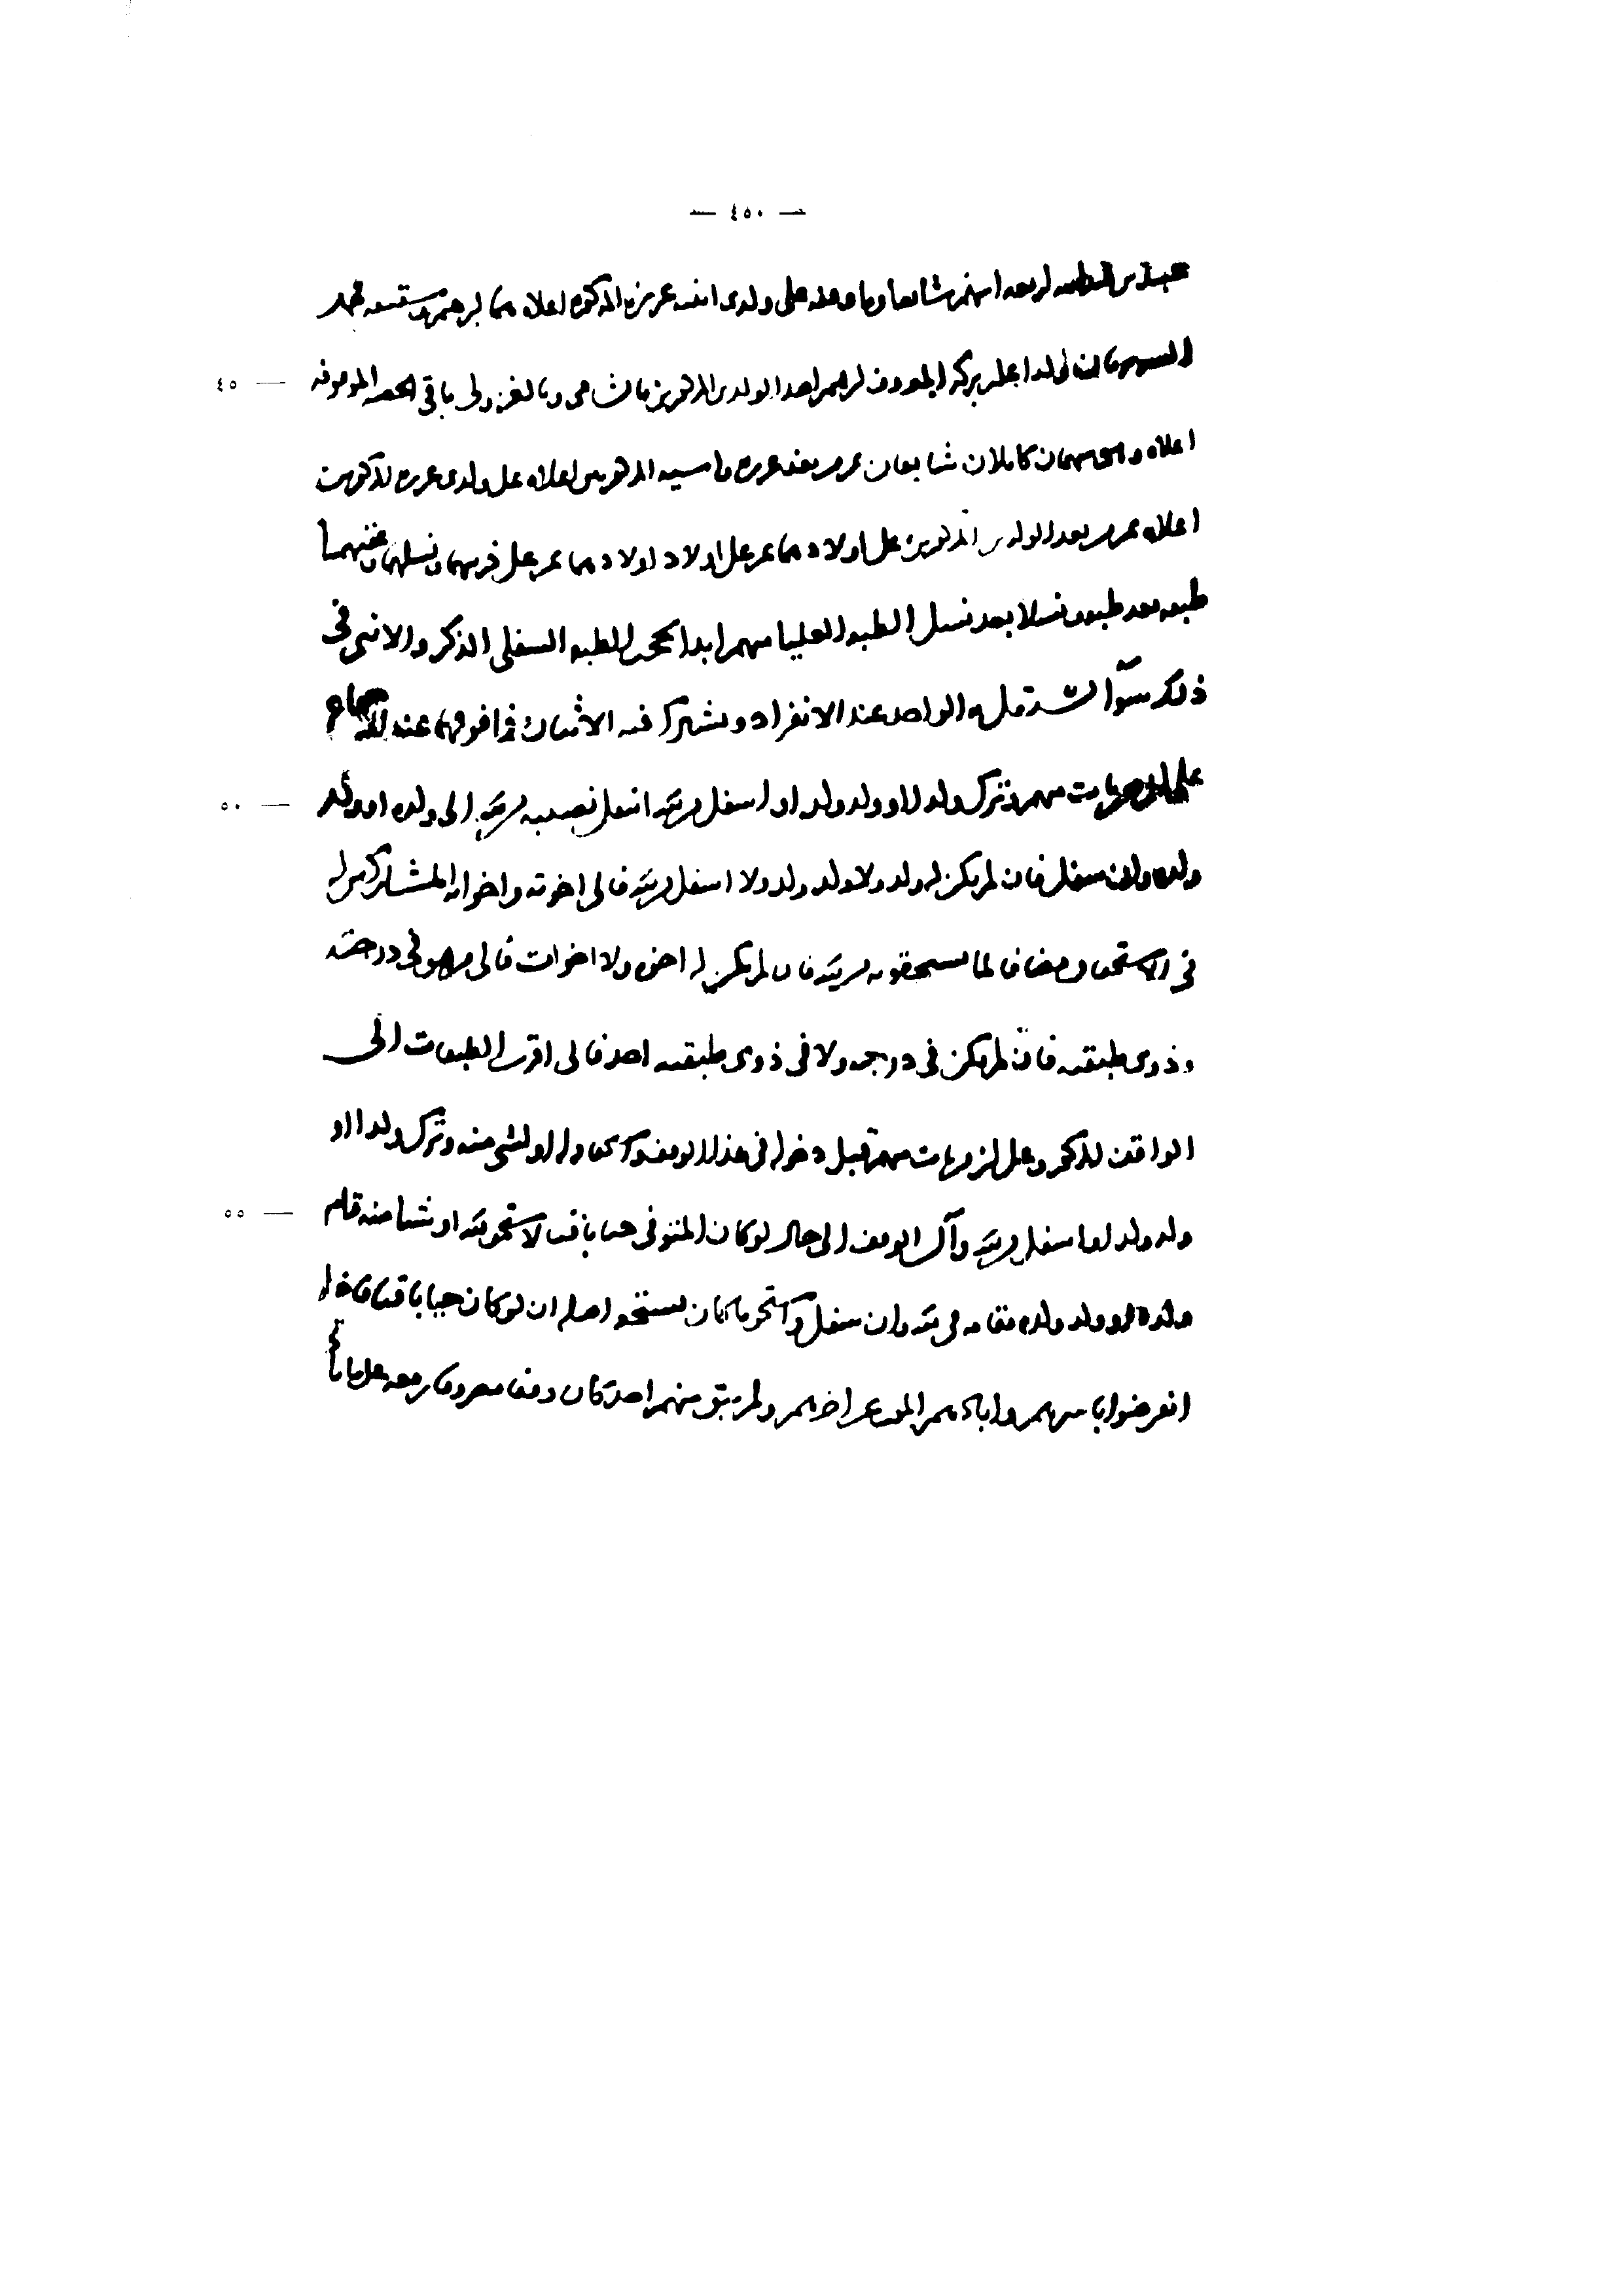 — ٤٥٠ —
اربعه اسهم شايعا وما وقفه على ولدى ابنته عزيزه المذكوره اعلاه هما ابرهيم وشقيقه محمد
٤٥ — بركه المعروف ابرهيم احد الولدين المذكورين بالشامى وبالغزولى باقى الحصه الموقوفه
اعلاه وهى سهمان كاملان شايعان ثم من بعد عزيزه واسيه المذكورتين اعلاه على ولدى عزيزه المذكورين
اعلاه ثم من بعد الولدين المذكورين على اولادهما ثم على اولاد اولادهما ثم على ذريتهما ونسلهما وعقبهما
طبقه بعد طبقه ونسلا بعد نسل الطبقه العليا منهم ابدا تحجب الطبقه السفلى الذكر والانثى فى
ذلك سوآ يستقل به الواحد عند الانفراد ويشترك فيه الاثنان فما فوقهما عند الاجتماع
٥٠ — على ان من مات منهم وترك ولدا او ولد ولد او اسفل من ذلك انتقل نصيبه من ذلك الى ولده او ولد
ولده وان سفل فان لم يكن له ولد ولا ولد ولد ولا اسفل من ذلك فالى اخوته واخواته المشاركين له
فى الاستحقاق مضافا لما يستحقونه من ذلك فان لم يكن له اخوه ولا اخوات فالى من هو فى درجته
وذوى طبقته فان لم يكن فى درجته ولا فى ذوى طبقته احد فالى اقرب الطبقات الى
الواقف المذكور وعلى ان من مات منهم قبل دخوله فى هذا الوقف واستحقاقه له او لشى منه وترك ولدا او
٥٥ — ولد ولد او اسفل من ذلك وآل الوقف الى حال لو كان المتوفى حيا باقيا لاستحق ذلك او شيا منه قام
ولده او ولد ولده مقامه فى ذلك وان سفل واستحق ما كان يستحقه اصله ان لو كان حيا باقيا فاذا
انقرضوا باسرهم وابادهم الموت عن اخرهم ولم يبق منهم احد كان وقفا مصروفا ريعه على ما يأ